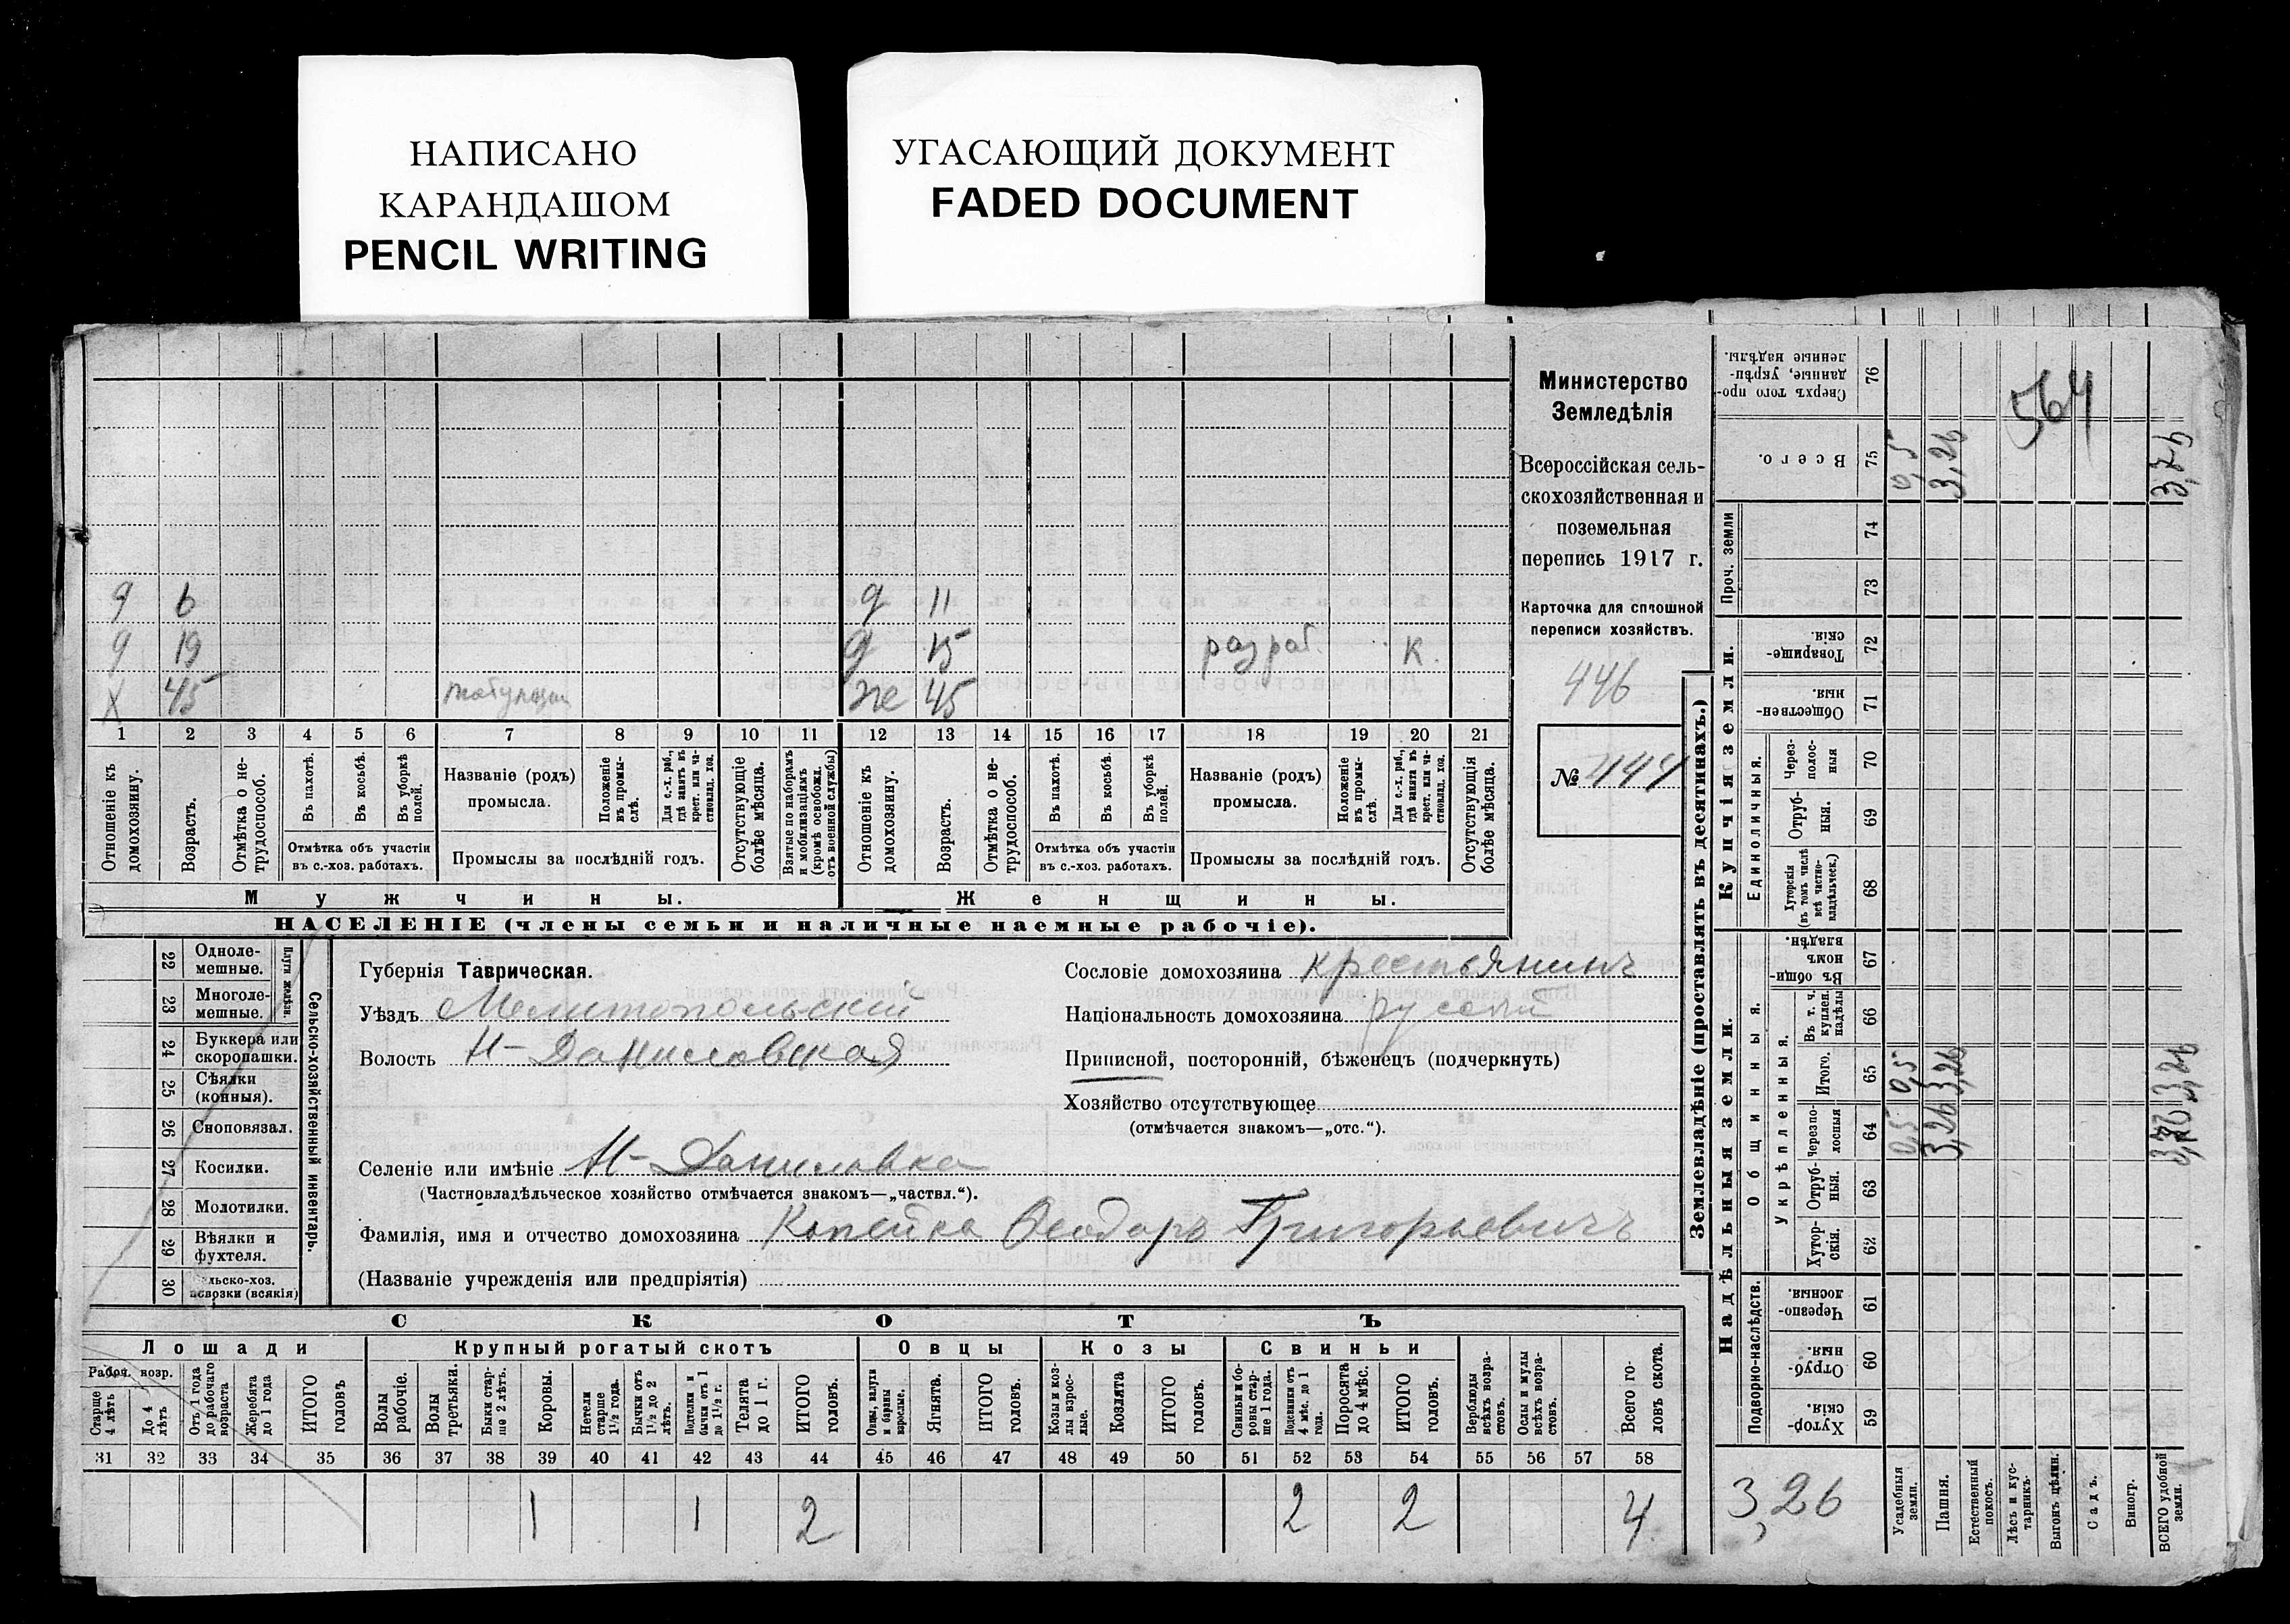 НАПИСАНО
КАРАНДАШОМ
PENCIL WRITING
УГАСАЮЩИЙ ДОКУМЕНТ
FADED DOCUMENT
Министерство
Земледѣлія
Всероссійская сель-
скохозяйственная и
поземельная
перепись 1917 г.
Карточка для сплошной
переписи хозяйствъ.
446
№ 444
564
д 6 д 11
д 19 д 15 разраб. к.
х 45 же 45
1 2 3 4 5 6 7 8 9 10 11 12 13 14 15 16 17 18 19 20 21
Отношеніе къ домохозяину.
Возрастъ.
Отмѣтка о не-трудоспособ.
Въ пахотѣ.
Въ косьбѣ.
Въ уборкѣ полей.
Отмѣтка объ участіи
въ с.-хоз. работахъ.
Названіе (родъ)
промысла.
Положеніе въ промы-слѣ.
Для с.-х. раб., гдѣ занятъ въ крест. или ча-стновлад. хоз.
Промыслы за послѣдній годъ.
Отсутствующіе болѣе мѣсяца.
Взятые по наборамъ и мобилизаціямъ (кромѣ освобожд. отъ военной службы)
Отношеніе къ домохозяину.
Возрастъ.
Отмѣтка о не-трудоспособ.
Въ пахотѣ.
Въ косьбѣ.
Въ уборкѣ полей.
Отмѣтка объ участіи
въ с.-хоз. работахъ.
Названіе (родъ)
промысла.
Положеніе въ промы-слѣ.
Для с.-х. раб., гдѣ занята въ крест. или ча-стновлад. хоз.
Промыслы за послѣдній годъ.
Отсутствующія болѣе мѣсяца.
Мужчины.
Женщины.
НАСЕЛЕНІЕ (члены семьи и наличные наемные рабочіе).
Сельско-хозяйственный инвентарь.
Плуги желѣзн.
22 Одноле-мешные.
23 Многоле-мешные.
24 Буккера или скоропашки.
25 Сѣялки (конныя).
26 Сноповязал.
27 Косилки.
28 Молотилки.
29 Вѣялки и фухтеля.
30 льско-хоз. повозки (всякія)
Губернія Таврическая.
Уѣздъ Мелитопольскій
Волость Н-Даниловская
Сословіе домохозяина крестьянинъ
Національность домохозяина русскій
Приписной, посторонній, бѣженецъ (подчеркнуть)
Хозяйство отсутствующее
(отмѣчается знакомъ—„отс.“).
Селеніе или имѣніе Н-Даниловка
(Частновладѣльческое хозяйство отмѣчается знакомъ—„частвл.“).
Фамилія, имя и отчество домохозяина Копейка Ѳеодоръ Григорьевичъ
(Названіе учрежденія или предпріятія)
СКОТЪ
Лошади
Крупный рогатый скотъ
Овцы
Козы
Свиньи
Рабоч. возр.
Старше 4 лѣтъ
До 4 лѣтъ
Отъ 1 года до рабочаго возраста
Жеребята до 1 года
ИТОГО головъ
Волы рабочіе.
Волы третьяки.
Быки стар-ше 2 лѣтъ.
Коровы.
Нетели старше 1½ года.
Бычки отъ 1½ до 2 лѣтъ.
Подтелки и бычки отъ 1 до 1½ г.
Телята до 1 г.
ИТОГО головъ.
Овцы, валухи и бараны взрослые.
Ягнята.
ИТОГО головъ.
Козы и коз-лы взрос-лые.
Козлята
ИТОГО головъ.
Свиньи и бо-ровы стар-ше 1 года.
Подсвинки отъ 4 мѣс. до 1 года.
Поросята до 4 мѣс.
ИТОГО головъ.
Верблюды всѣхъ возра-стовъ.
Ослы и мулы всѣхъ возра-стовъ.
Всего го-ловъ скота.
31 32 33 34 35 36 37 38 39 40 41 42 43 44 45 46 47 48 49 50 51 52 53 54 55 56 57 58
1 1 2 2 2 4
Землевладѣніе (проставлять въ десятинахъ.)
Надѣльныя земли.
Купчія земли.
Проч. земли
Подворно-наслѣдств.
Общинныя.
Укрѣпленныя.
Единоличныя.
76 Сверхъ того про-данные, укрѣп-ленные надѣлы.
75 Всего. 0,5 3,26 3,76
74
73
72 Товарище-скія.
71 Обществен-ныя.
70 Через-полос-ныя
69 Отруб-ныя.
68 Хуторскія (въ томъ числѣ всѣ частно-владѣльческ.)
67 Въ общи-нномъ владѣн.
66 Въ т. ч. куплен. надѣлы
65 Итого. 0,5 3,26
64 Черезпо-лосныя 0,5 3,26
63 Отруб-ныя.
62 Хутор-скія.
61 Черезпо-лосныя.
60 Отруб-ныя.
59 Хутор-скія.
3,26
Усадебныя земли.
Пашня.
Естественный покосъ.
Лѣсъ и кус-тарникъ.
Выгонъ цѣлин.
Садъ.
Виногр.
ВСЕГО удобной земли.